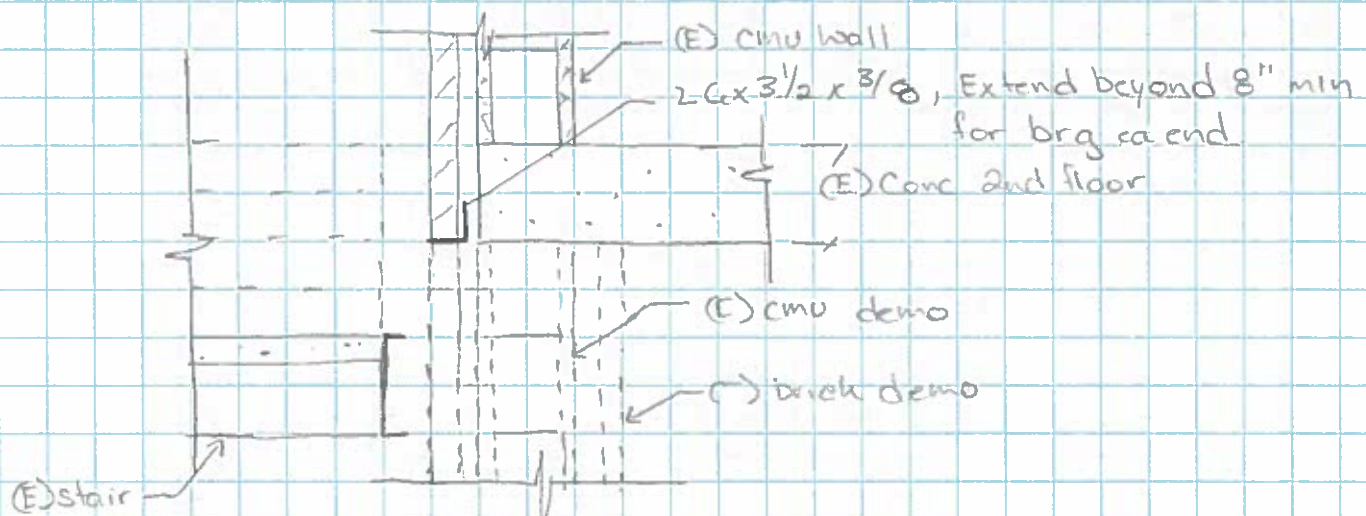 (E) cmu wall
3 1/2 x 3/8, Extend beyond 8" min
for brg ea end
(E) Conc 2nd floor
(E) cmu demo
brick demo
(E) stair